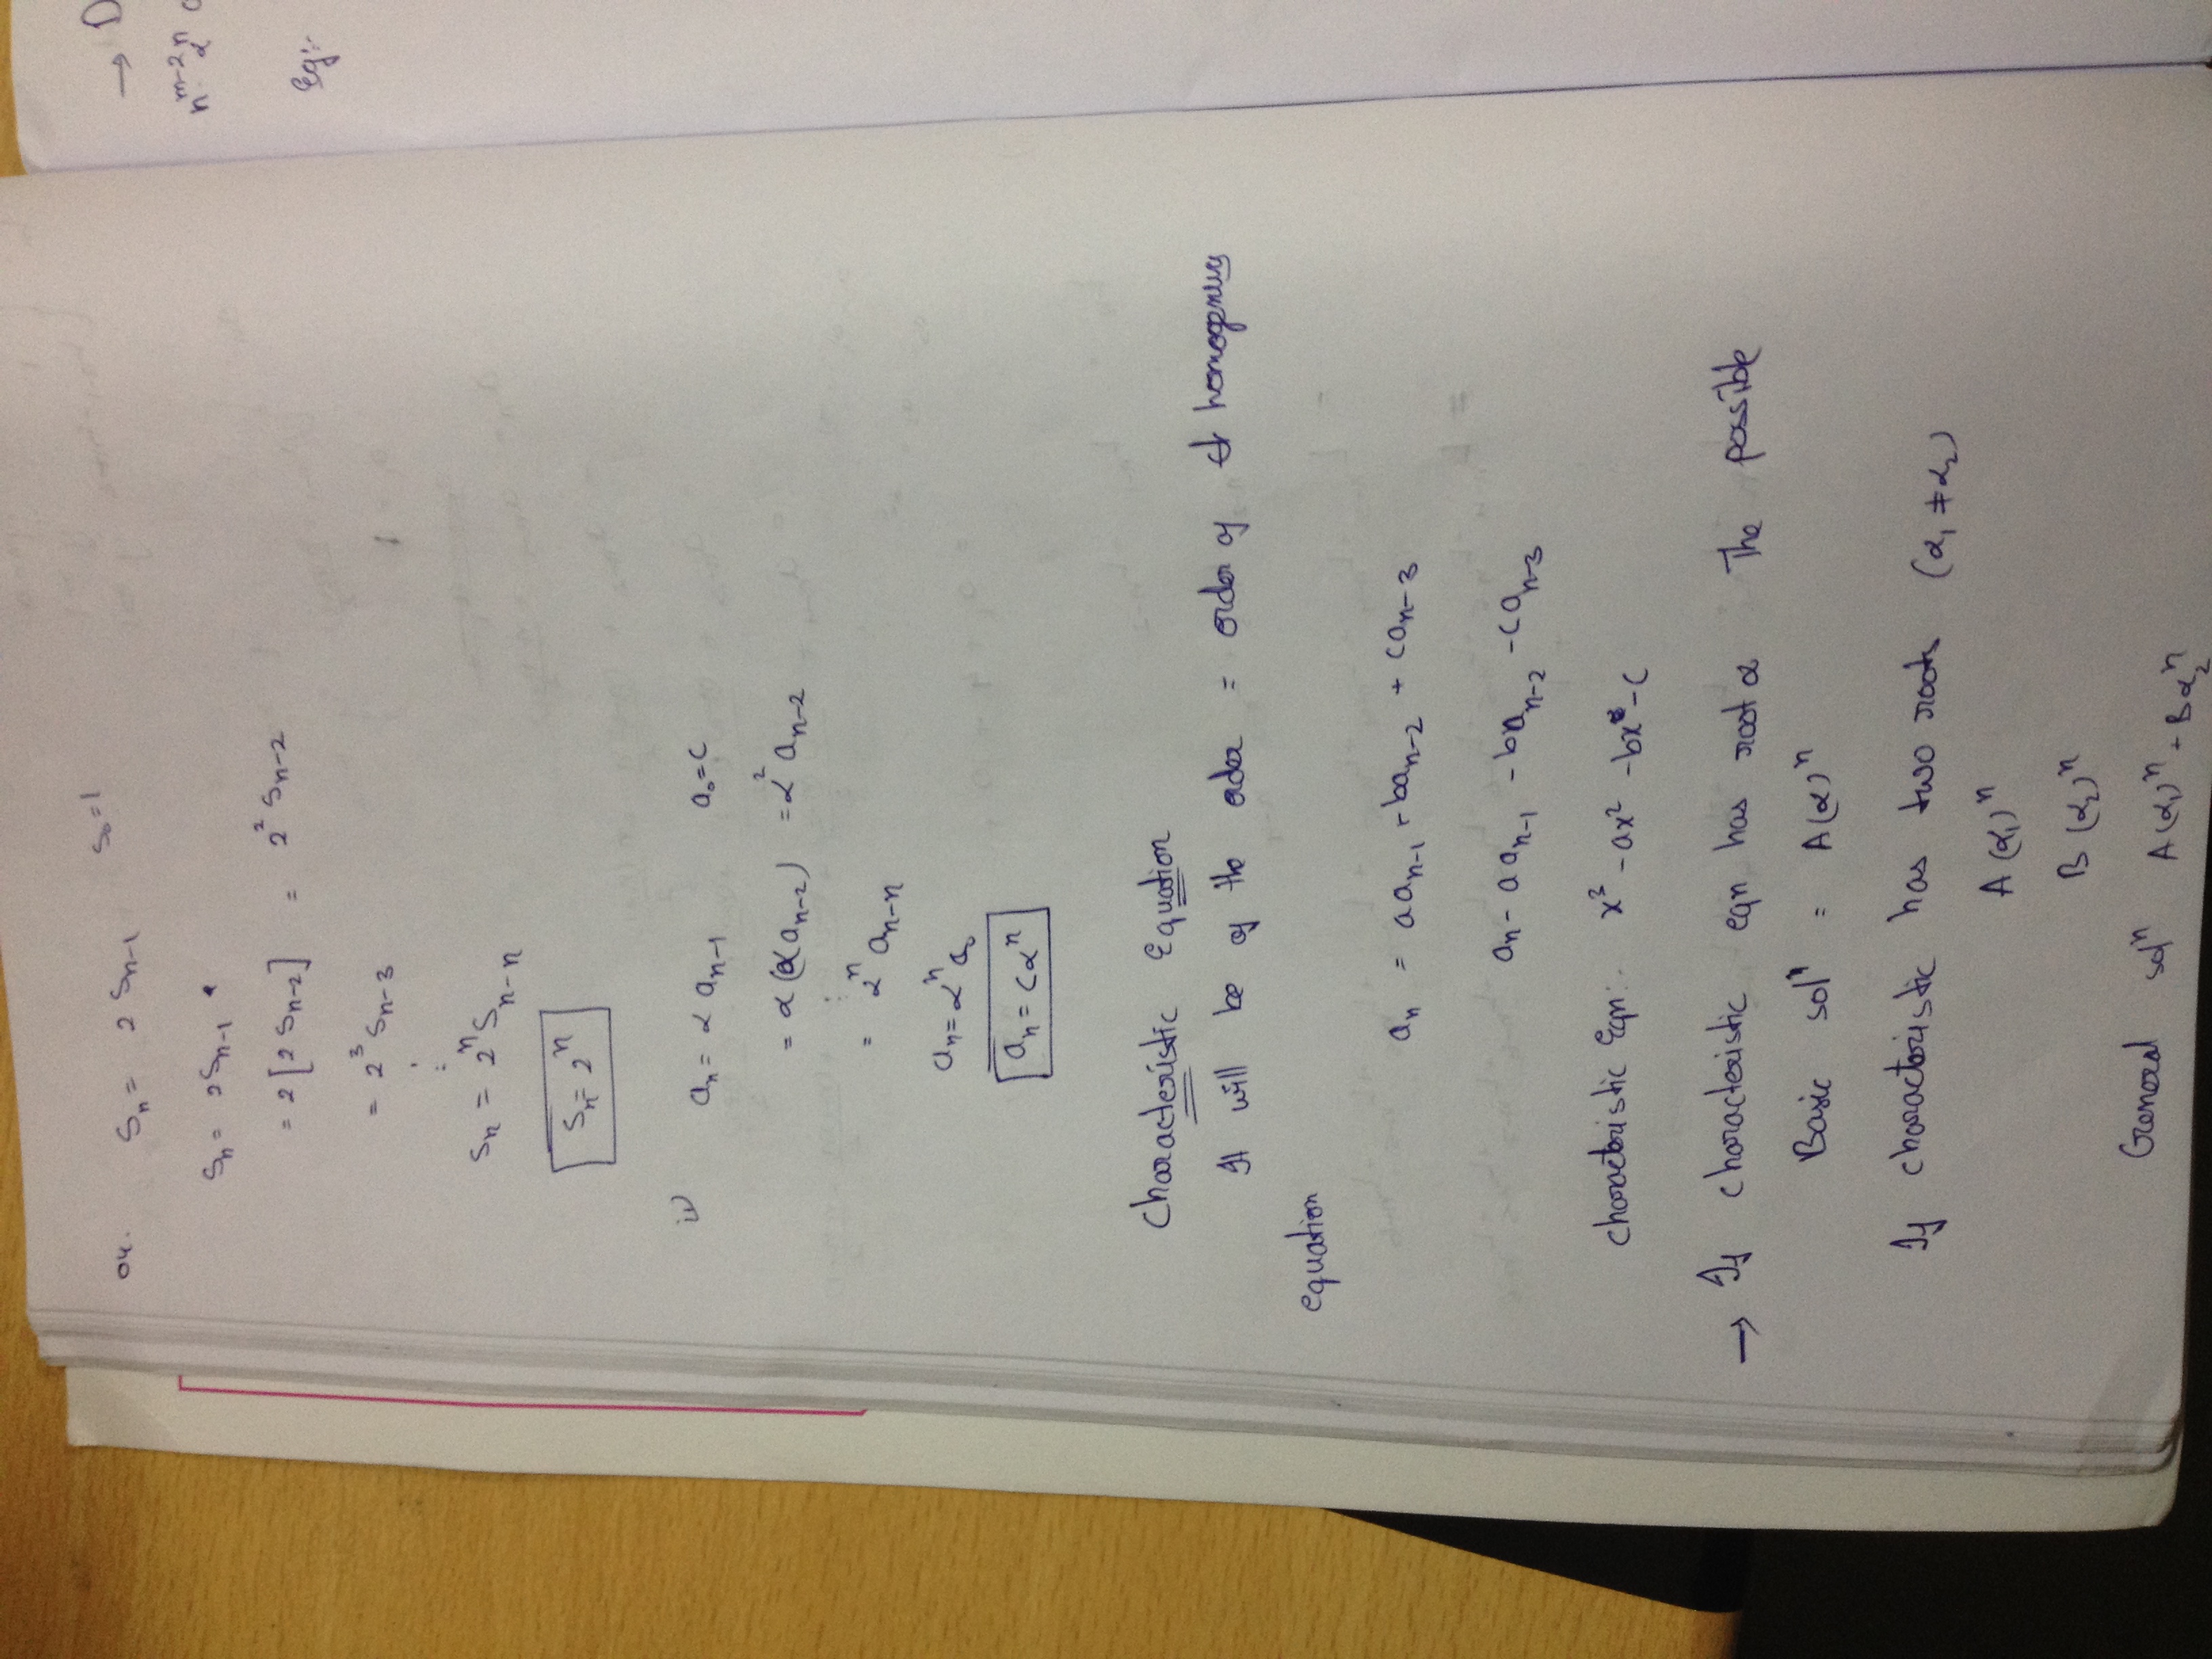 04. Sn = 2 Sn-1 S0=1
Sn = 2Sn-1
= 2[2 Sn-2] = 2² Sn-2
= 2³ Sn-3
⋮
Sn = 2ⁿ Sn-n
Sn = 2ⁿ
ii) an = α an-1 a0=c
= α(α an-2) = α² an-2
⋮
= αⁿ an-n
an = αⁿ a0
an = cαⁿ
Characteristic Equation
It will be of the order = order of homogenus
equation
an = a an-1 + ban-2 + can-3
an - a an-1 - ban-2 - can-3
Characteristic Eqn:- x³ - ax² - bx - c
→ If characteristic eqn has root α The possible
Basic solⁿ = A(α)ⁿ
If characteristic has two roots (α1 ≠ α2)
A(α1)ⁿ
B(α2)ⁿ
General solⁿ A(α1)ⁿ + Bα2ⁿ
→ D
n^m-2 αⁿ
Eg:-